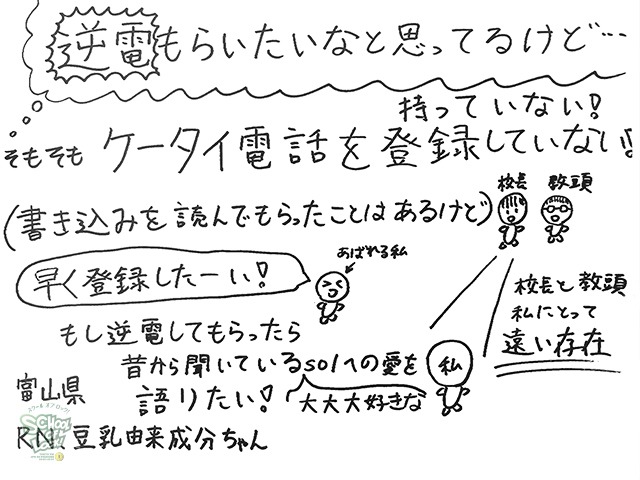 逆電もらいたいなと思ってるけど…
持っていない!
そもそも ケータイ電話を登録していない!
(書き込みを読んでもらったことはあるけど)
校長 教頭
あばれる私
早く登録したーい!
校長と教頭
私にとって
遠い存在
もし逆電してもらったら
昔から聞いているsolへの愛を
私
語りたい! 大大大好きな
富山県
SCHOOL OF LOCK!
RN.豆乳由来成分ちゃん